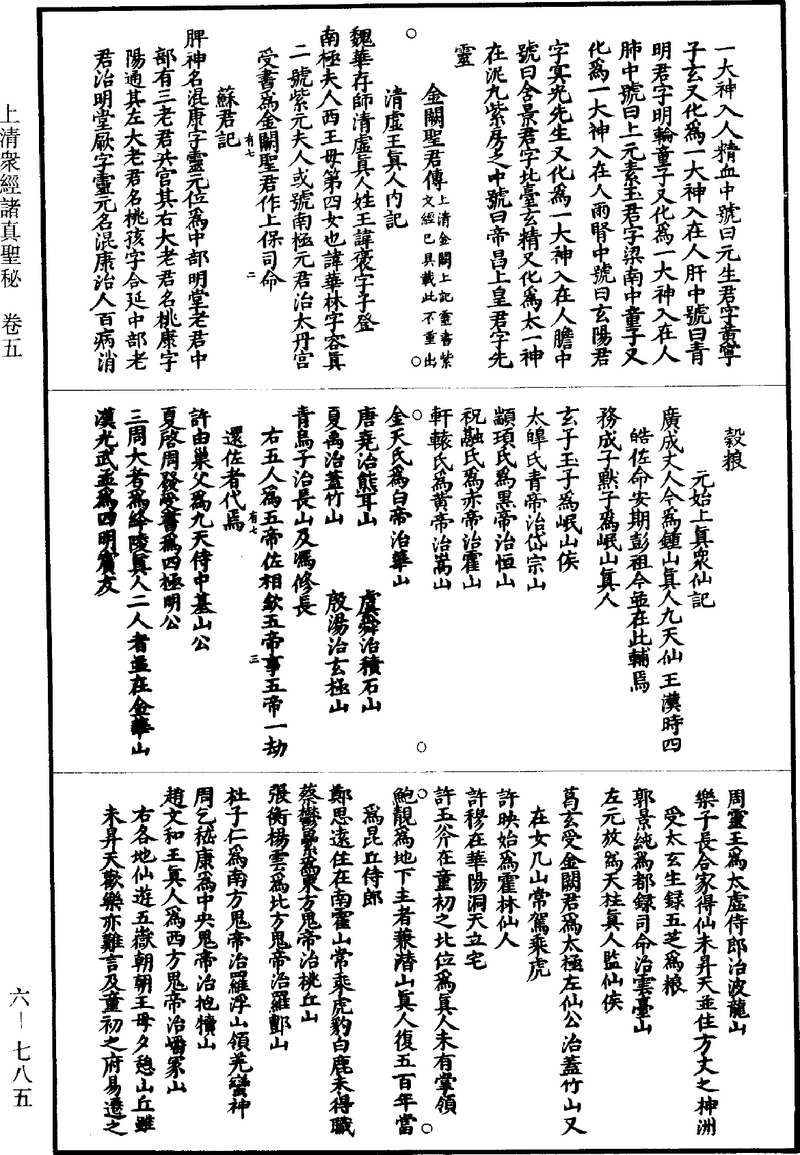 一大神入人精血中號曰元生君字黃寧
子玄又化為一大神入在人肝中號曰青
明君字明輪童子又化為一大神入在人
肺中號曰上元素玉君字梁南中童子又
化為一大神入在人兩腎中號曰玄陽君
字冥光先生又化為一大神入在人膽中
號曰含景君字北臺玄精又化為太一神
在泥丸紫房之中號曰帝昌上皇君字先
靈
金闕聖君傳上清金闕上記靈書紫文經已具載此不重出
清虛王真人內記
魏華存師清虛真人姓王諱褒字子登
南極夫人西王母第四女也諱華林字容真
二號紫元夫人或號南極元君治太丹宮
受書為金闕聖君作上保司命
有七 二
蘇君記
脾神名混康字靈元位為中部明堂老君中
部有三老君共宮其右大老君名桃康字
陽通其左大老君名桃孩字合延中部老
君治明堂厥字靈元名混康治人百病消
穀粮
元始上真衆仙記
廣成丈人今為鍾山真人九天仙王漢時四
皓佐命安期彭祖今並在此輔焉
務成子默子為岷山真人
玄子玉子為岷山侯
太皥氏青帝治岱宗山
顓頊氏為黑帝治恒山
祝融氏為赤帝治霍山
軒轅氏為黃帝治嵩山
金天氏為白帝治華山
唐堯治熊耳山 虞舜治積石山
夏禹治蓋竹山 殷湯治玄極山
青烏子治長山及馮修長
右五人為五帝佐相欽五帝事五帝一劫
還佐者代焉
有七 三
許由巢父為九天侍中墓山公
夏啓周發受書為四極明公
三周大者為絳陵真人二人者並在金華山
漢光武並為四明賓友
周靈王為太虛侍郎治波龍山
樂子長合家得仙未昇天並住方丈之神洲
受太玄生錄五芝為粮
郭景純為都錄司命治雲臺山
左元放為天柱真人監仙侯
葛玄受金闕君為太極左仙公治蓋竹山又
在女几山常駕乘虎
許映始為霍林仙人
許穆在華陽洞天立宅
許玉斧在童初之北位為真人未有掌領
鮑靚為地下主者兼潛山真人復五百年當
為昆丘侍郎
鄭思遠住在南霍山常乘虎豹白鹿未得職
蔡鬱壘為東方鬼帝治桃丘山
張衡楊雲為北方鬼帝治羅酆山
杜子仁為南方鬼帝治羅浮山領羌蠻神
周乞嵇康為中央鬼帝治抱犢山
趙文和王真人為西方鬼帝治嶓冢山
右各地仙遊五嶽朝朝王母夕憩山丘雖
未昇天歡樂亦難言及童初之府易遷之
上清衆經諸真聖秘 卷五
六—七八五